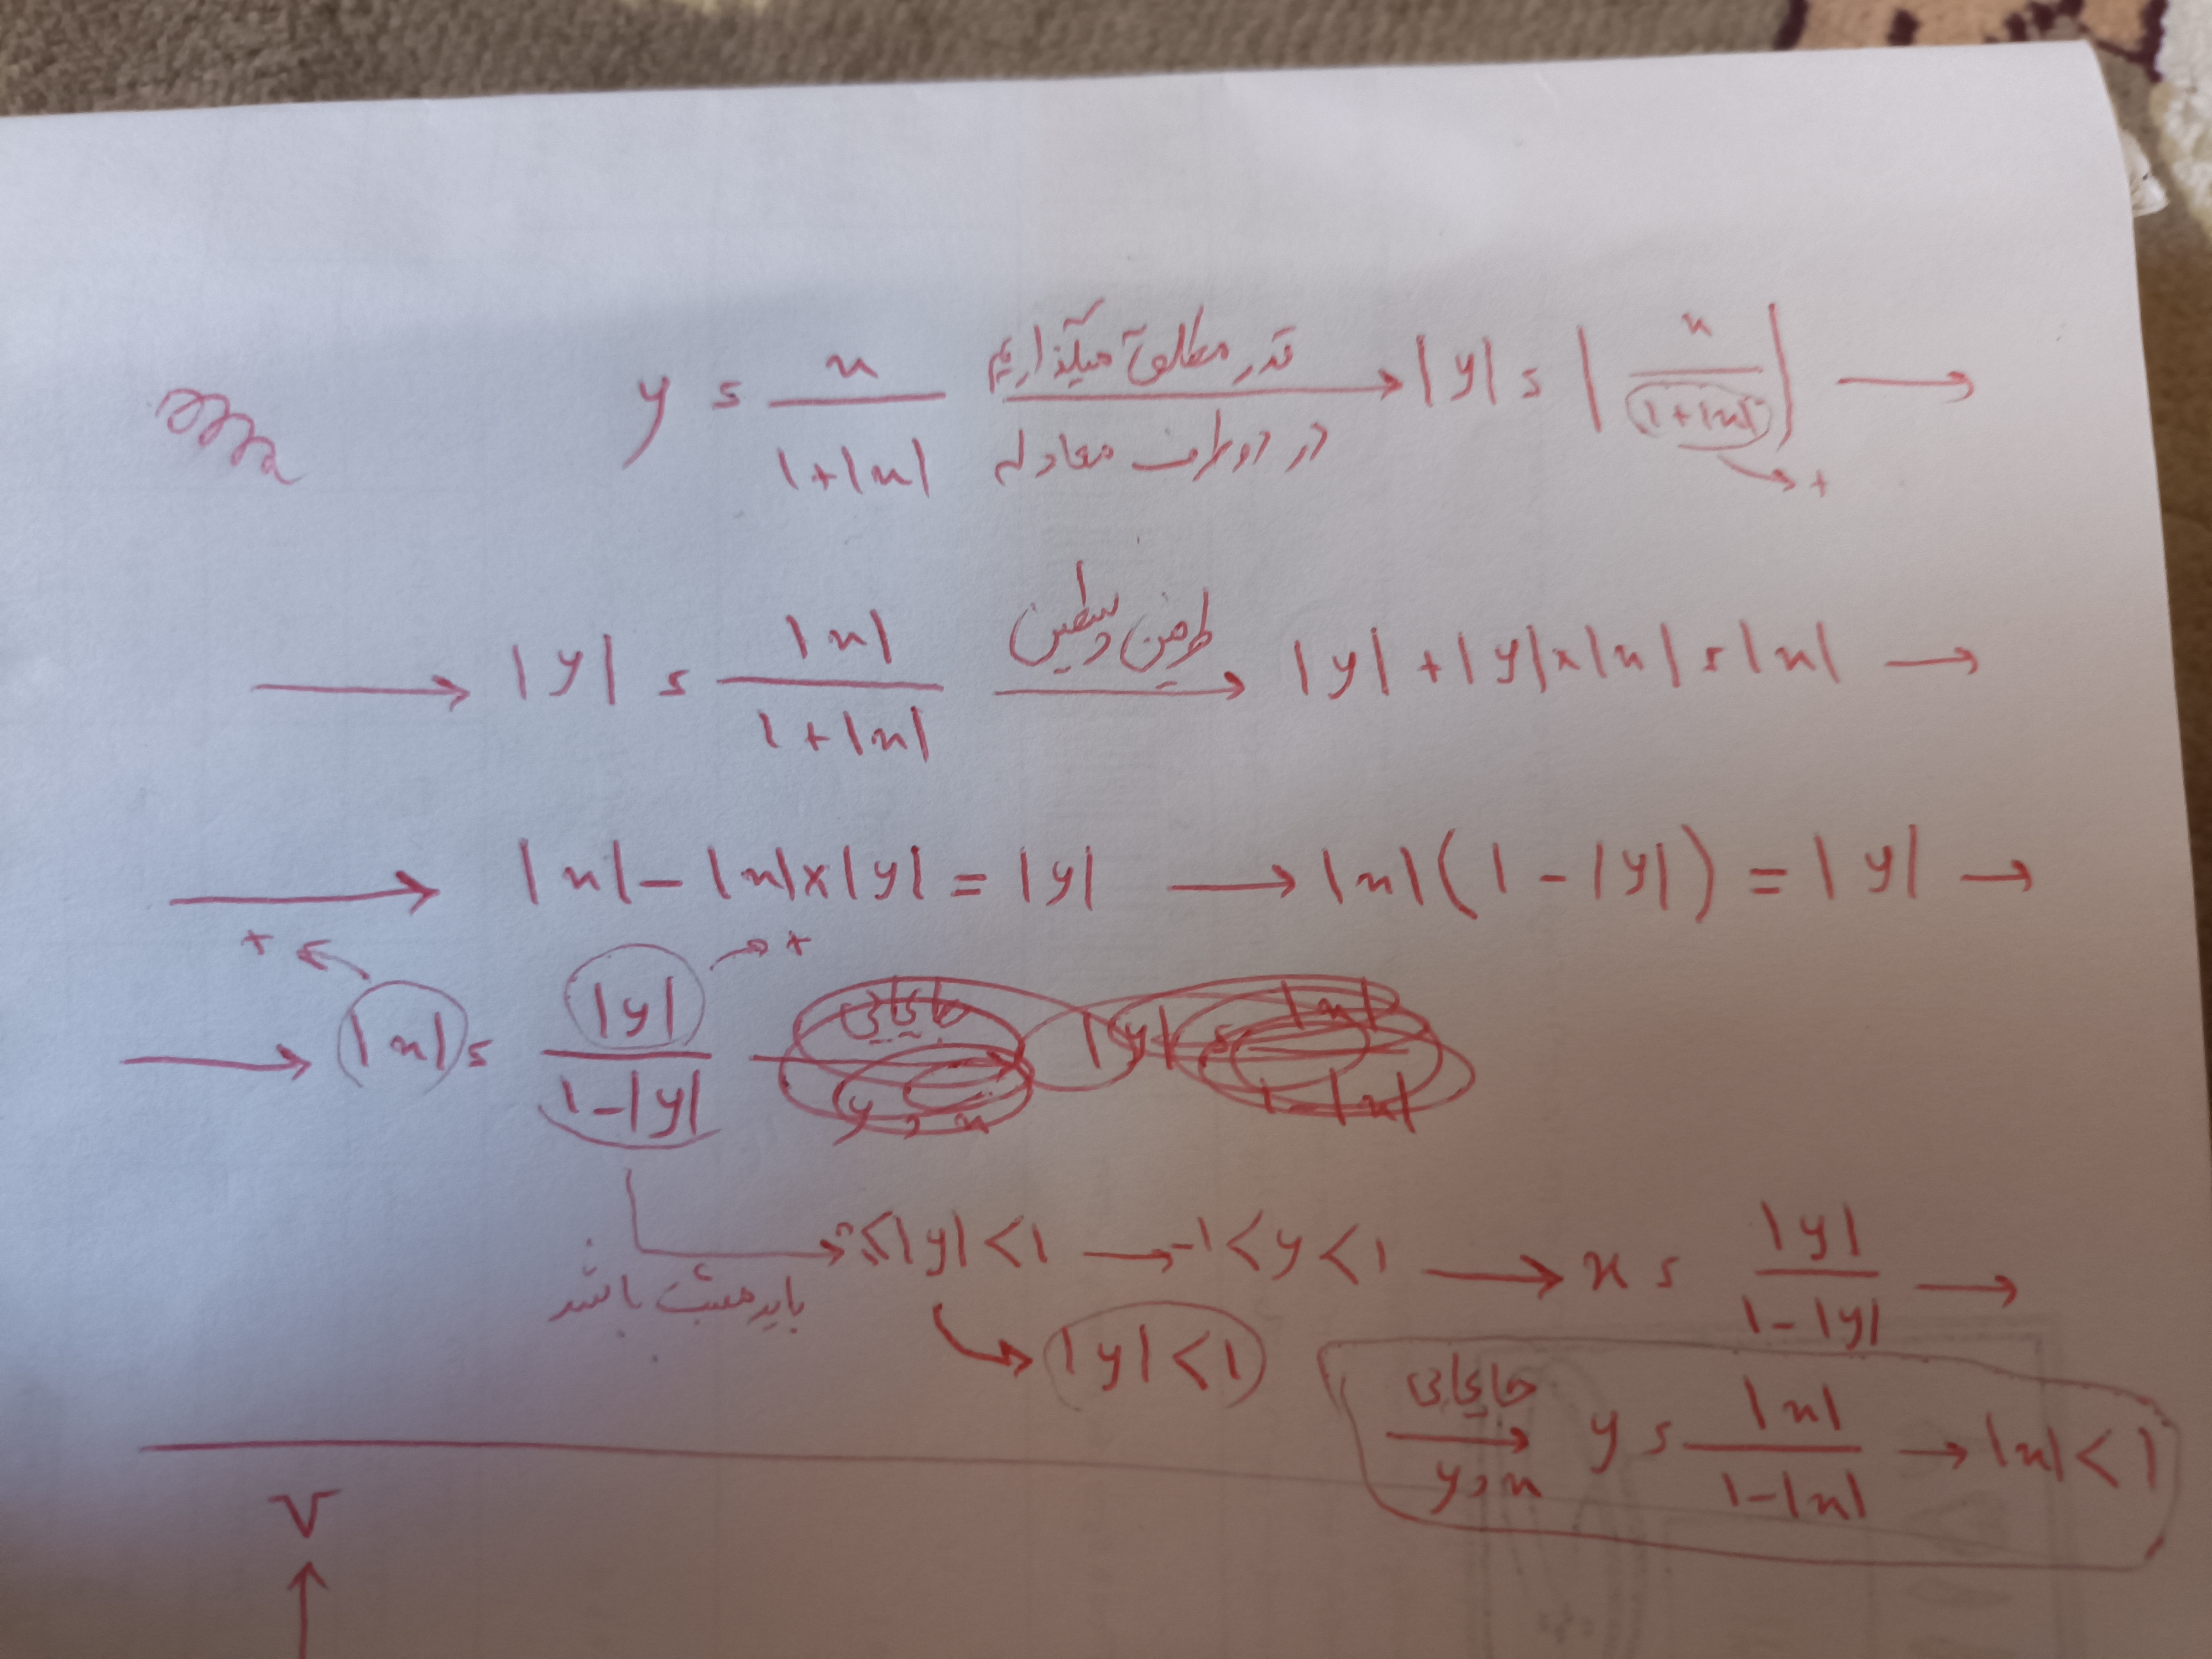 y = x / 1+|x| قدر مطلق میگذاریم در دو طرف معادله → |y| = | x / 1+|x| | → +
→ |y| = |x| / 1+|x| طرفین وسطین → |y| + |y|×|x| = |x| →
→ |x| - |x|×|y| = |y| → |x|(1 - |y|) = |y| →
+ ← → +
→ |x| = |y| / 1-|y| جابجایی y و x → |y| = |x| / 1-|x|
باید مثبت باشد → 0≤|y|<1 → -1<y<1 → x = |y| / 1-|y| →
→ |y|<1
جابجایی y و x → y = |x| / 1-|x| → |x|<1